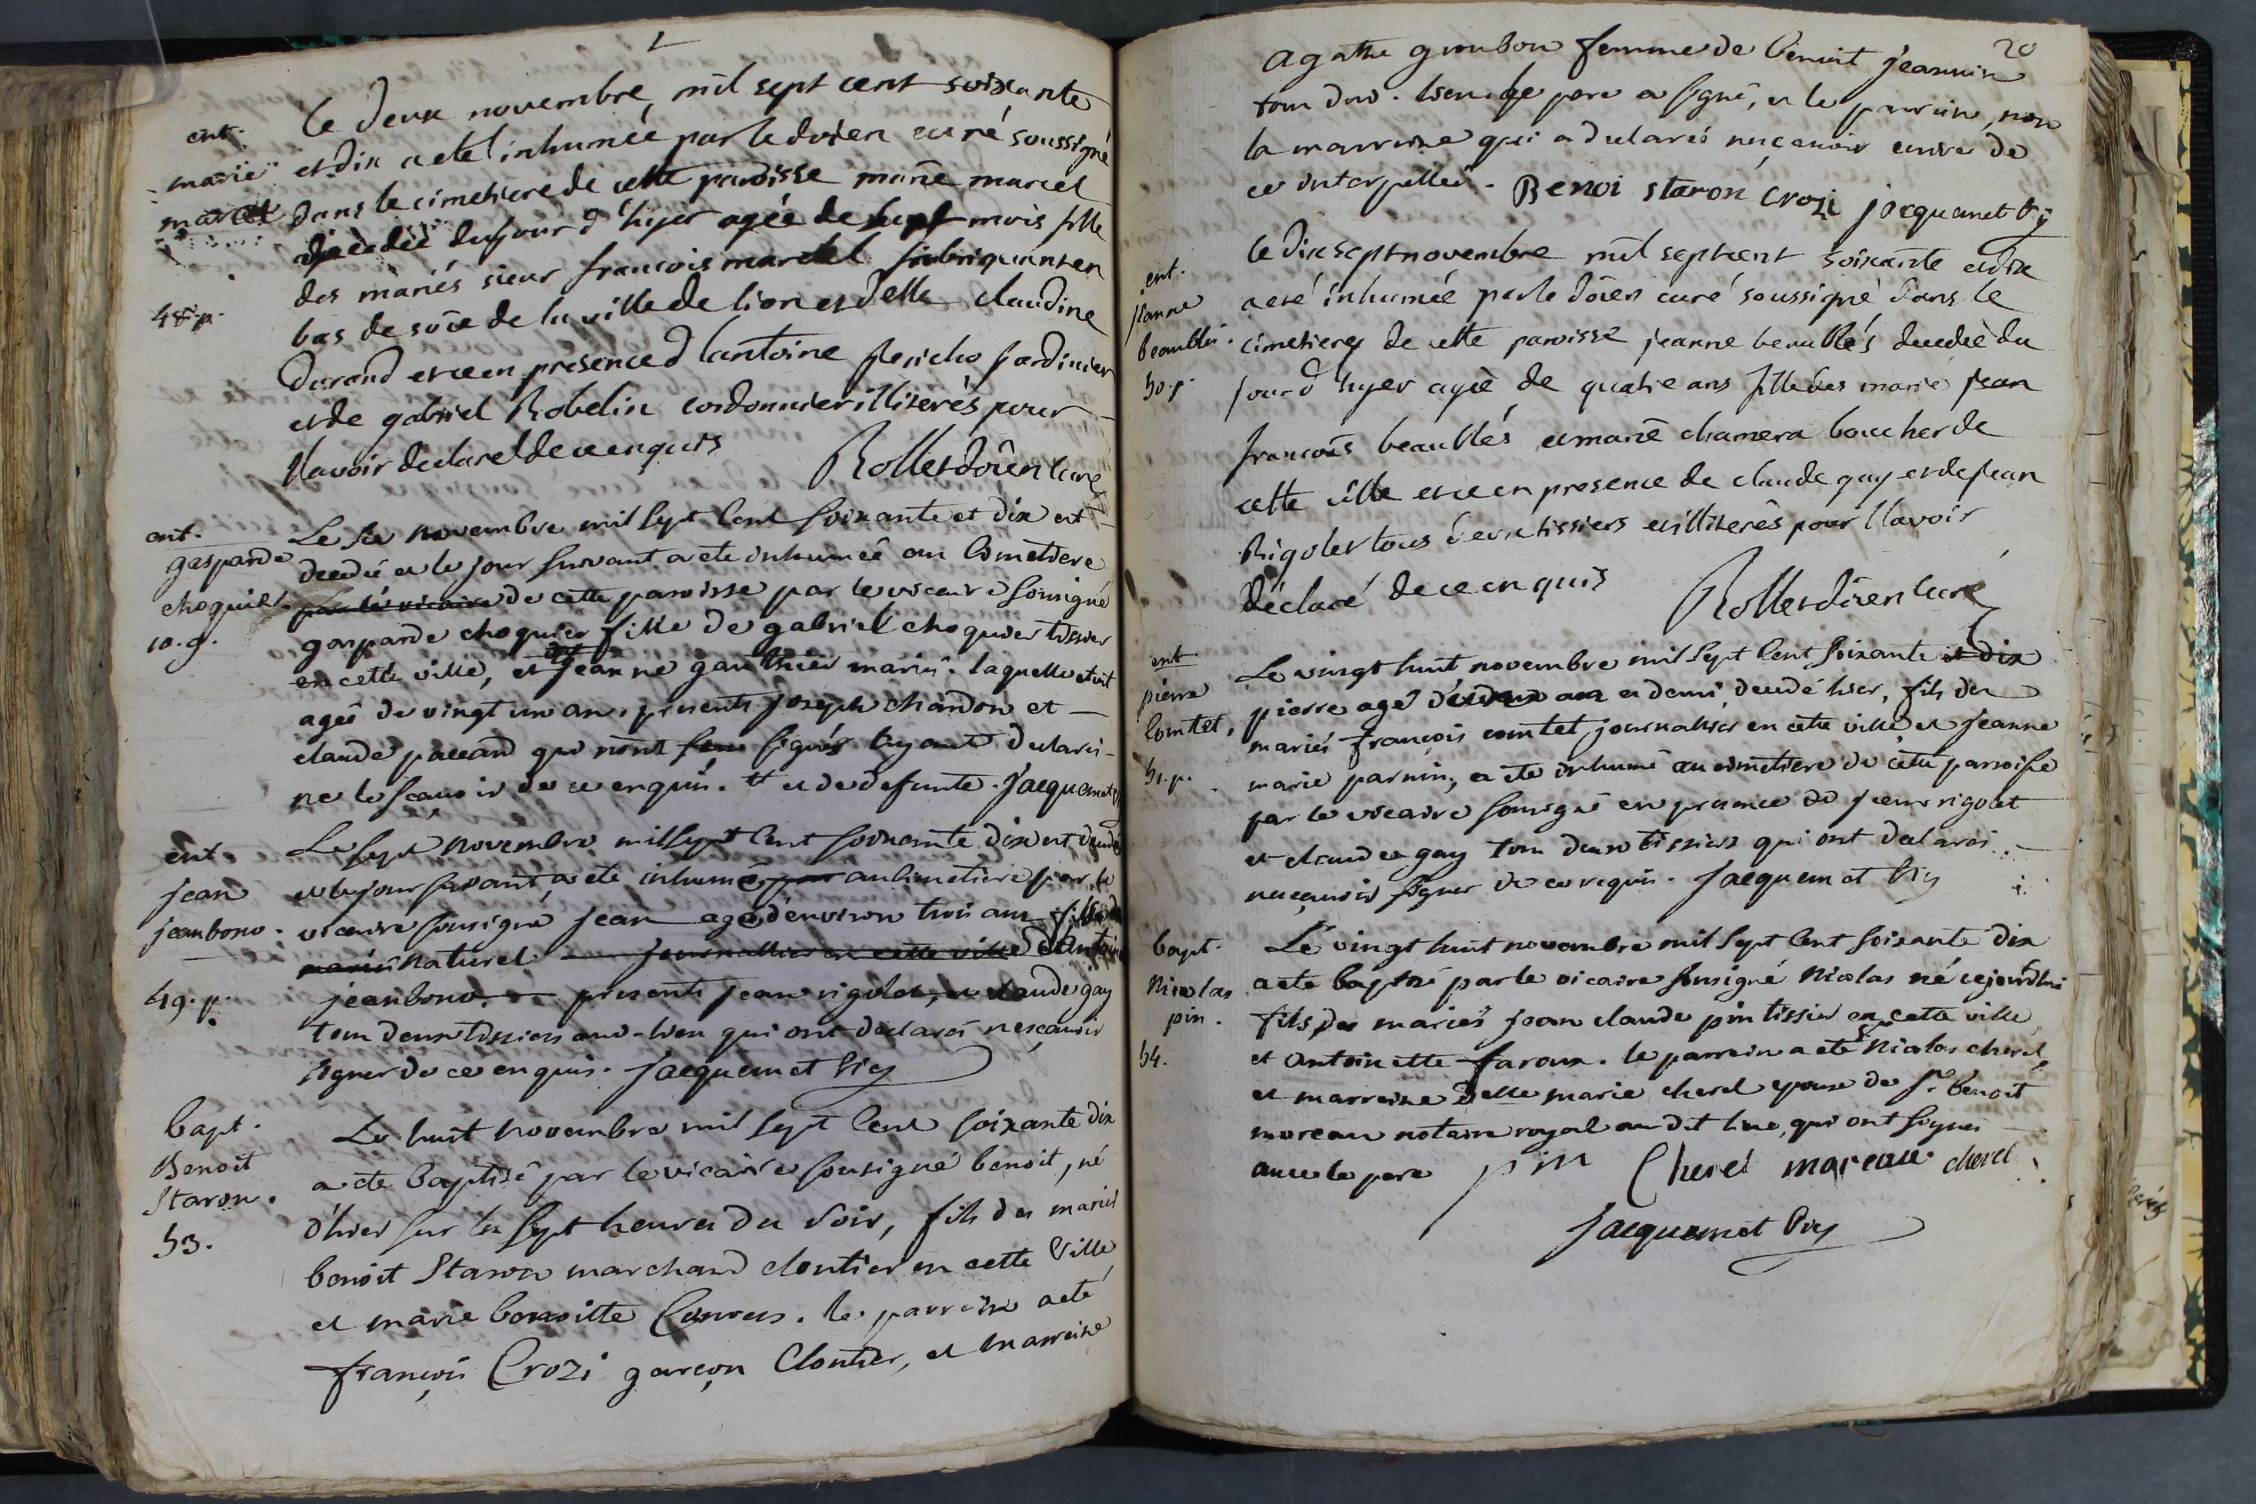 ent.
marië
marcel
48. p.
le deux novembre, mil sept cent soixante
et dix a eté inhumée par le doïen curé soussigné
dans le cimetiere de cette paroisse marie marcel
décedée du jour d'hyer agée de sept mois fille
des mariés sieur francois marcel fabriquant en
bas de soïe de la ville de lion et delle claudine
durand et ce en presence d'antoine jericho jardinier
et de gabriel Robelin cordonnier illiterés pour
l'avoir declaré de ce enquis Rollet doïen curé
ent.
gasparde
choquier.
10. g.
Le six novembre mil sept cent soixante et dix est
decedée et le jour suivant a ete inhumée au cimetiere
par le vicaire de cette paroisse par le vicaire sousigné
gasparde choquier fille de gabriel choquier tissier
en cette ville, et jeanne gauthier mariés. laquelle etoit
ageé de vingt un an, presents joseph chardon et
claude paccard qui n'ont signés ayant declarés
ne le sçavoir de ce enquis. tt et de defunte. jacquemet
ent.
jean
jeanbono.
49. p.
Le sept novembre mil sept cent soixante dix est decedé
et le jour suivant, a ete inhumé par au cimetiere par le
vicaire sousigné jean agé d'environ trois ans fils
mariés naturel journallier en cette ville d'antoine
jeanbono. presents jean rigolet, et claude gay
tous deux tissiers aud. lieu qui ont declarés ne sçavoir
signer de ce enquis. jacquemet vic
Bapt.
Benoit
Staron.
53.
Le huit novembre mil sept cent soixante dix
a ete baptisé par le vicaire sousigné benoit, né
d'hier sur les sept heures du soir, fils des mariés
benoit Staron marchand cloutier en cette Ville
et marie benoitte Convers. le parrein a eté
françois Crozi garçon Cloutier, et marreine
20
agathe goubon femme de benoit jeannin
tous dud. lieu. le pere a signé, et le parrein, non
la marreine qui a declarés ne sçavoir ecrire de
ce interpellée. Benoi staron Crozi jacquemet vic
ent.
jeanne
beaublés.
50. p.
le dix sept novembre mil sept cent soixante et dix
a eté inhumée par le doïen curé soussigné dans le
cimetiere de cette paroisse jeanne beaublés decedée du
jour d'hyer ageé de quatre ans fille des mariés jean
francois beaublés et marie chamera boucher de
cette ville et ce en presence de claude gay et de jean
Rigolet tous deux tissiers et illiterés pour l'avoir
déclaré de ce enquis Rollet doïen curé
ent
pierre
Comtet,
51. p.
Le vingt huit novembre mil sept cent soixante et dix
pierre agé de deux ans et demi, decedé hier, fils des
mariés françois comtet, journalier en cette ville et jeanne
marie parnin, a ete inhumé au cimetiere de cette parroisse
par le vicaire sousigné en presence de jean rigolet
et claude gay tous deux tissiers qui ont declarés
ne sçavoir signer de ce requis. jacquemet vic
bapt.
Nicolas
pin.
54.
Le vingt huit novembre mil sept cent soixante dix
a ete baptisé par le vicaire sousigné Nicolas né cejourd'hui
fils des mariés jean claude pin tissier en cette ville
et antoinette faroux. le parrein a eté Sr Nicolas cherel,
et marreine delle marie cherel epouse de Sr. benoit
moreau notaire royal au dit lieu, qui ont signés
avec le pere pin Cherel moreau cherel
jacquemet vic